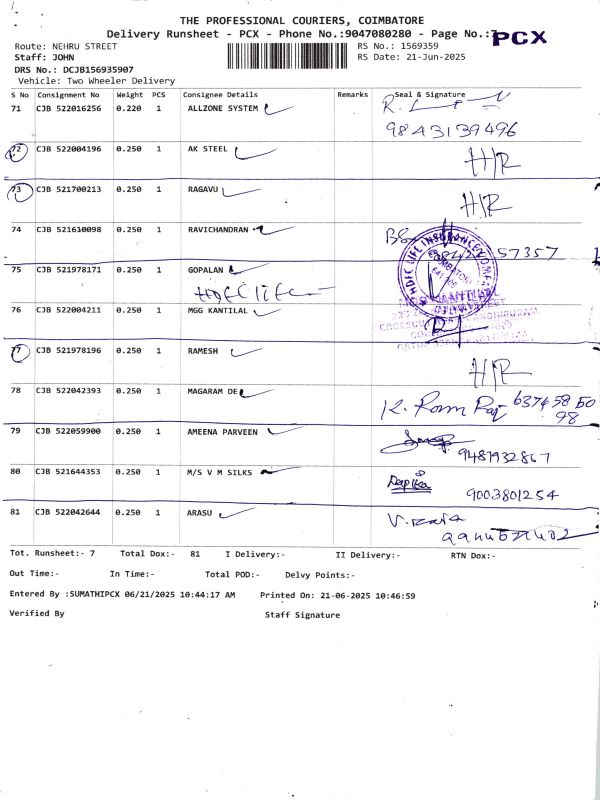 THE PROFESSIONAL COURIERS, COIMBATORE
Delivery Runsheet - PCX - Phone No.:9047080280 - Page No.:7
PCX
Route: NEHRU STREET RS No.: 1569359
Staff: JOHN RS Date: 21-Jun-2025
DRS No.: DCJB156935907
Vehicle: Two Wheeler Delivery
S No Consignment No Weight PCS Consignee Details Remarks Seal & Signature
71 CJB 522016256 0.220 1 ALLZONE SYSTEM
9843139496
72 CJB 522004196 0.250 1 AK STEEL H/R
73 CJB 521700213 0.250 1 RAGAVU H/R
74 CJB 521610098 0.250 1 RAVICHANDRAN
57357
75 CJB 521978171 0.250 1 GOPALAN
HDFC life
HDFC LIFE INSURANCE COMPANY
76 CJB 522004211 0.250 1 MGG KANTILAL
77 CJB 521978196 0.250 1 RAMESH H/R
78 CJB 522042393 0.250 1 MAGARAM DE K. Ram Raj 6374 58 50
98
79 CJB 522059900 0.250 1 AMEENA PARVEEN
9481932867
80 CJB 521644353 0.250 1 M/S V M SILKS Dapika
9003801254
81 CJB 522042644 0.250 1 ARASU V. Raja
Tot. Runsheet:- 7 Total Dox:- 81 I Delivery:- II Delivery:- RTN Dox:-
Out Time:- In Time:- Total POD:- Delvy Points:-
Entered By :SUMATHIPCX 06/21/2025 10:44:17 AM Printed On: 21-06-2025 10:46:59
Verified By Staff Signature